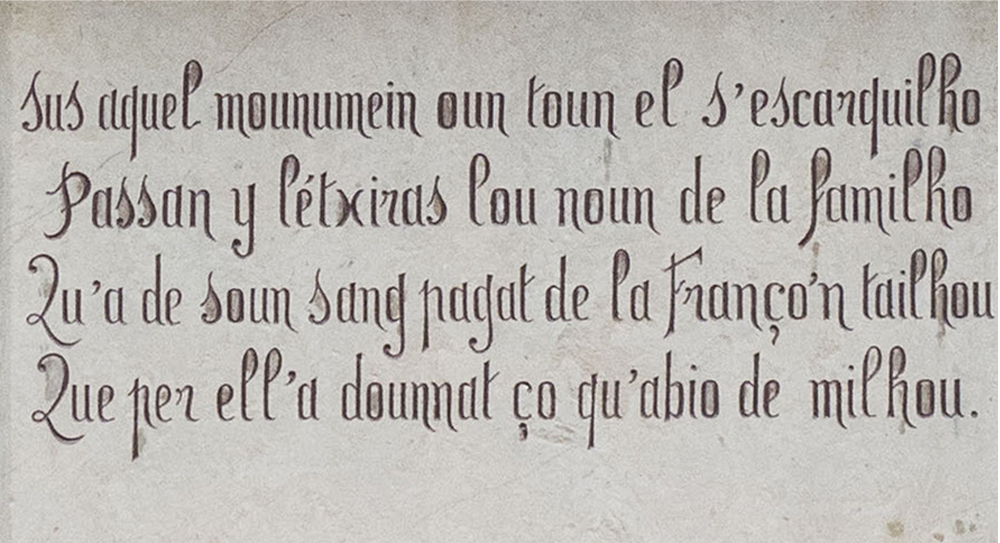 Sus aquel mounumein oun toun el s'escarquilho
Passan y létxiras lou noun de la familho
Qu'a de soun sang pagat de la Franço'n tailhou
Que per ell'a dounnat ço qu'abio de milhou.